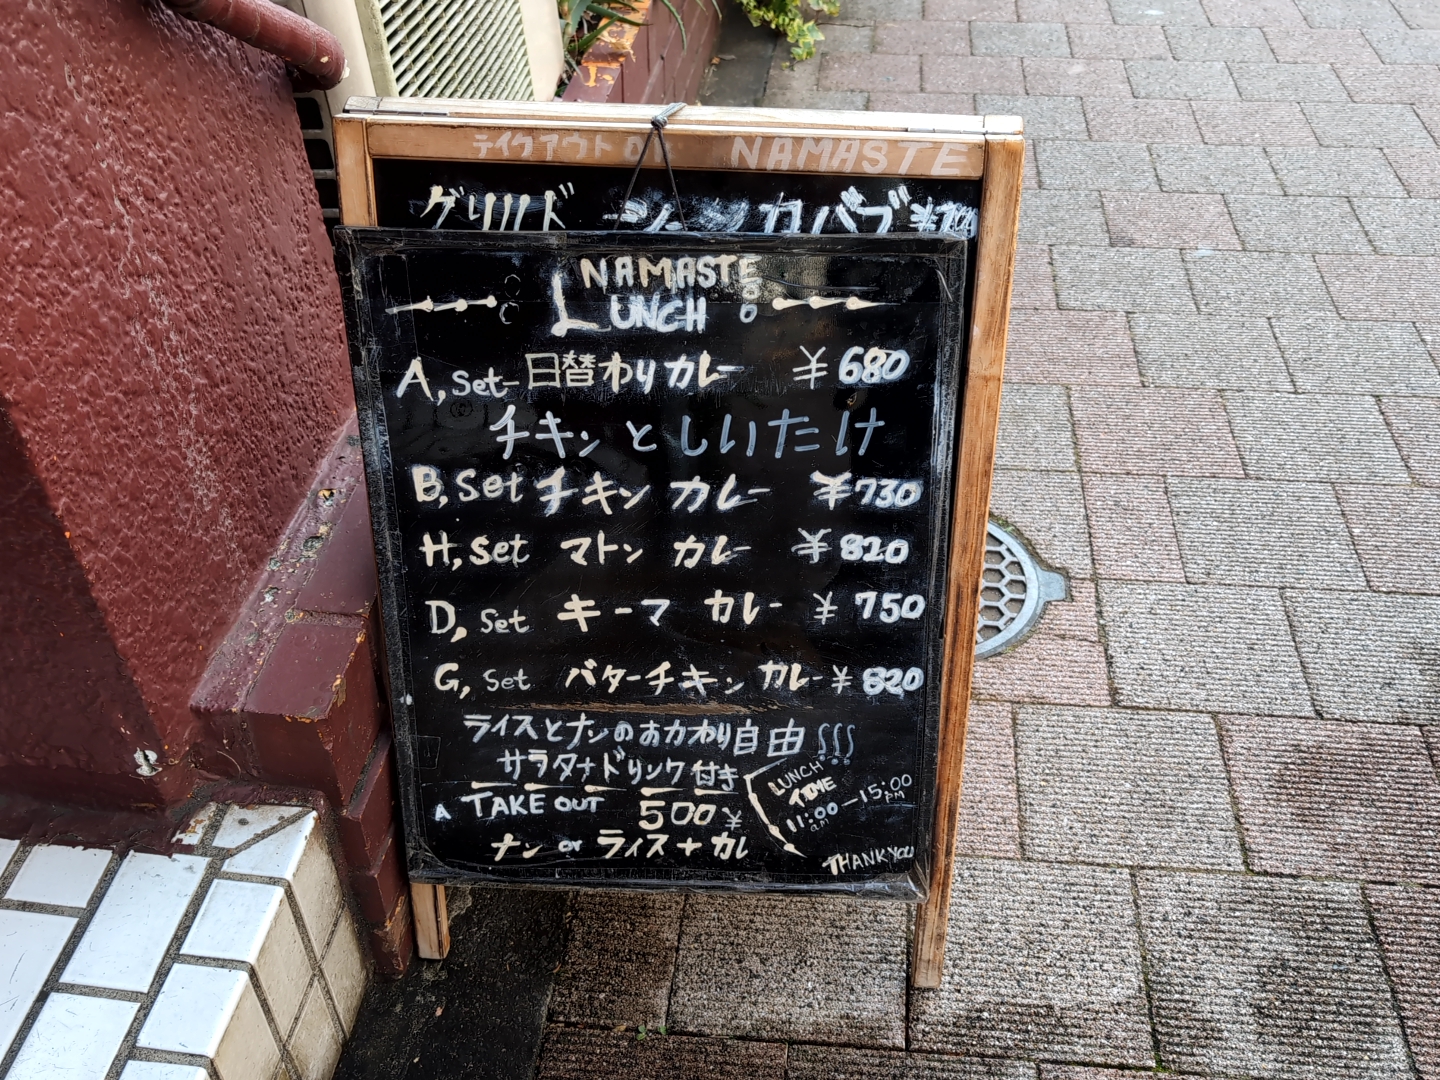 テイクアウト OK NAMASTE
グリルド カバブ
NAMASTE
LUNCH
A, Set- 日替わりカレー ¥680
チキンとしいたけ
B, Set チキン カレー ¥730
H, Set マトン カレー ¥820
D, Set キーマ カレー ¥750
G, Set バターチキン カレー ¥820
ライスとナンのおかわり自由
サラダ+ドリンク付き
A TAKE OUT 500¥
ナン or ライス + カレ
LUNCH
TIME
11:00 — 15:00
am PM
THANK YOU